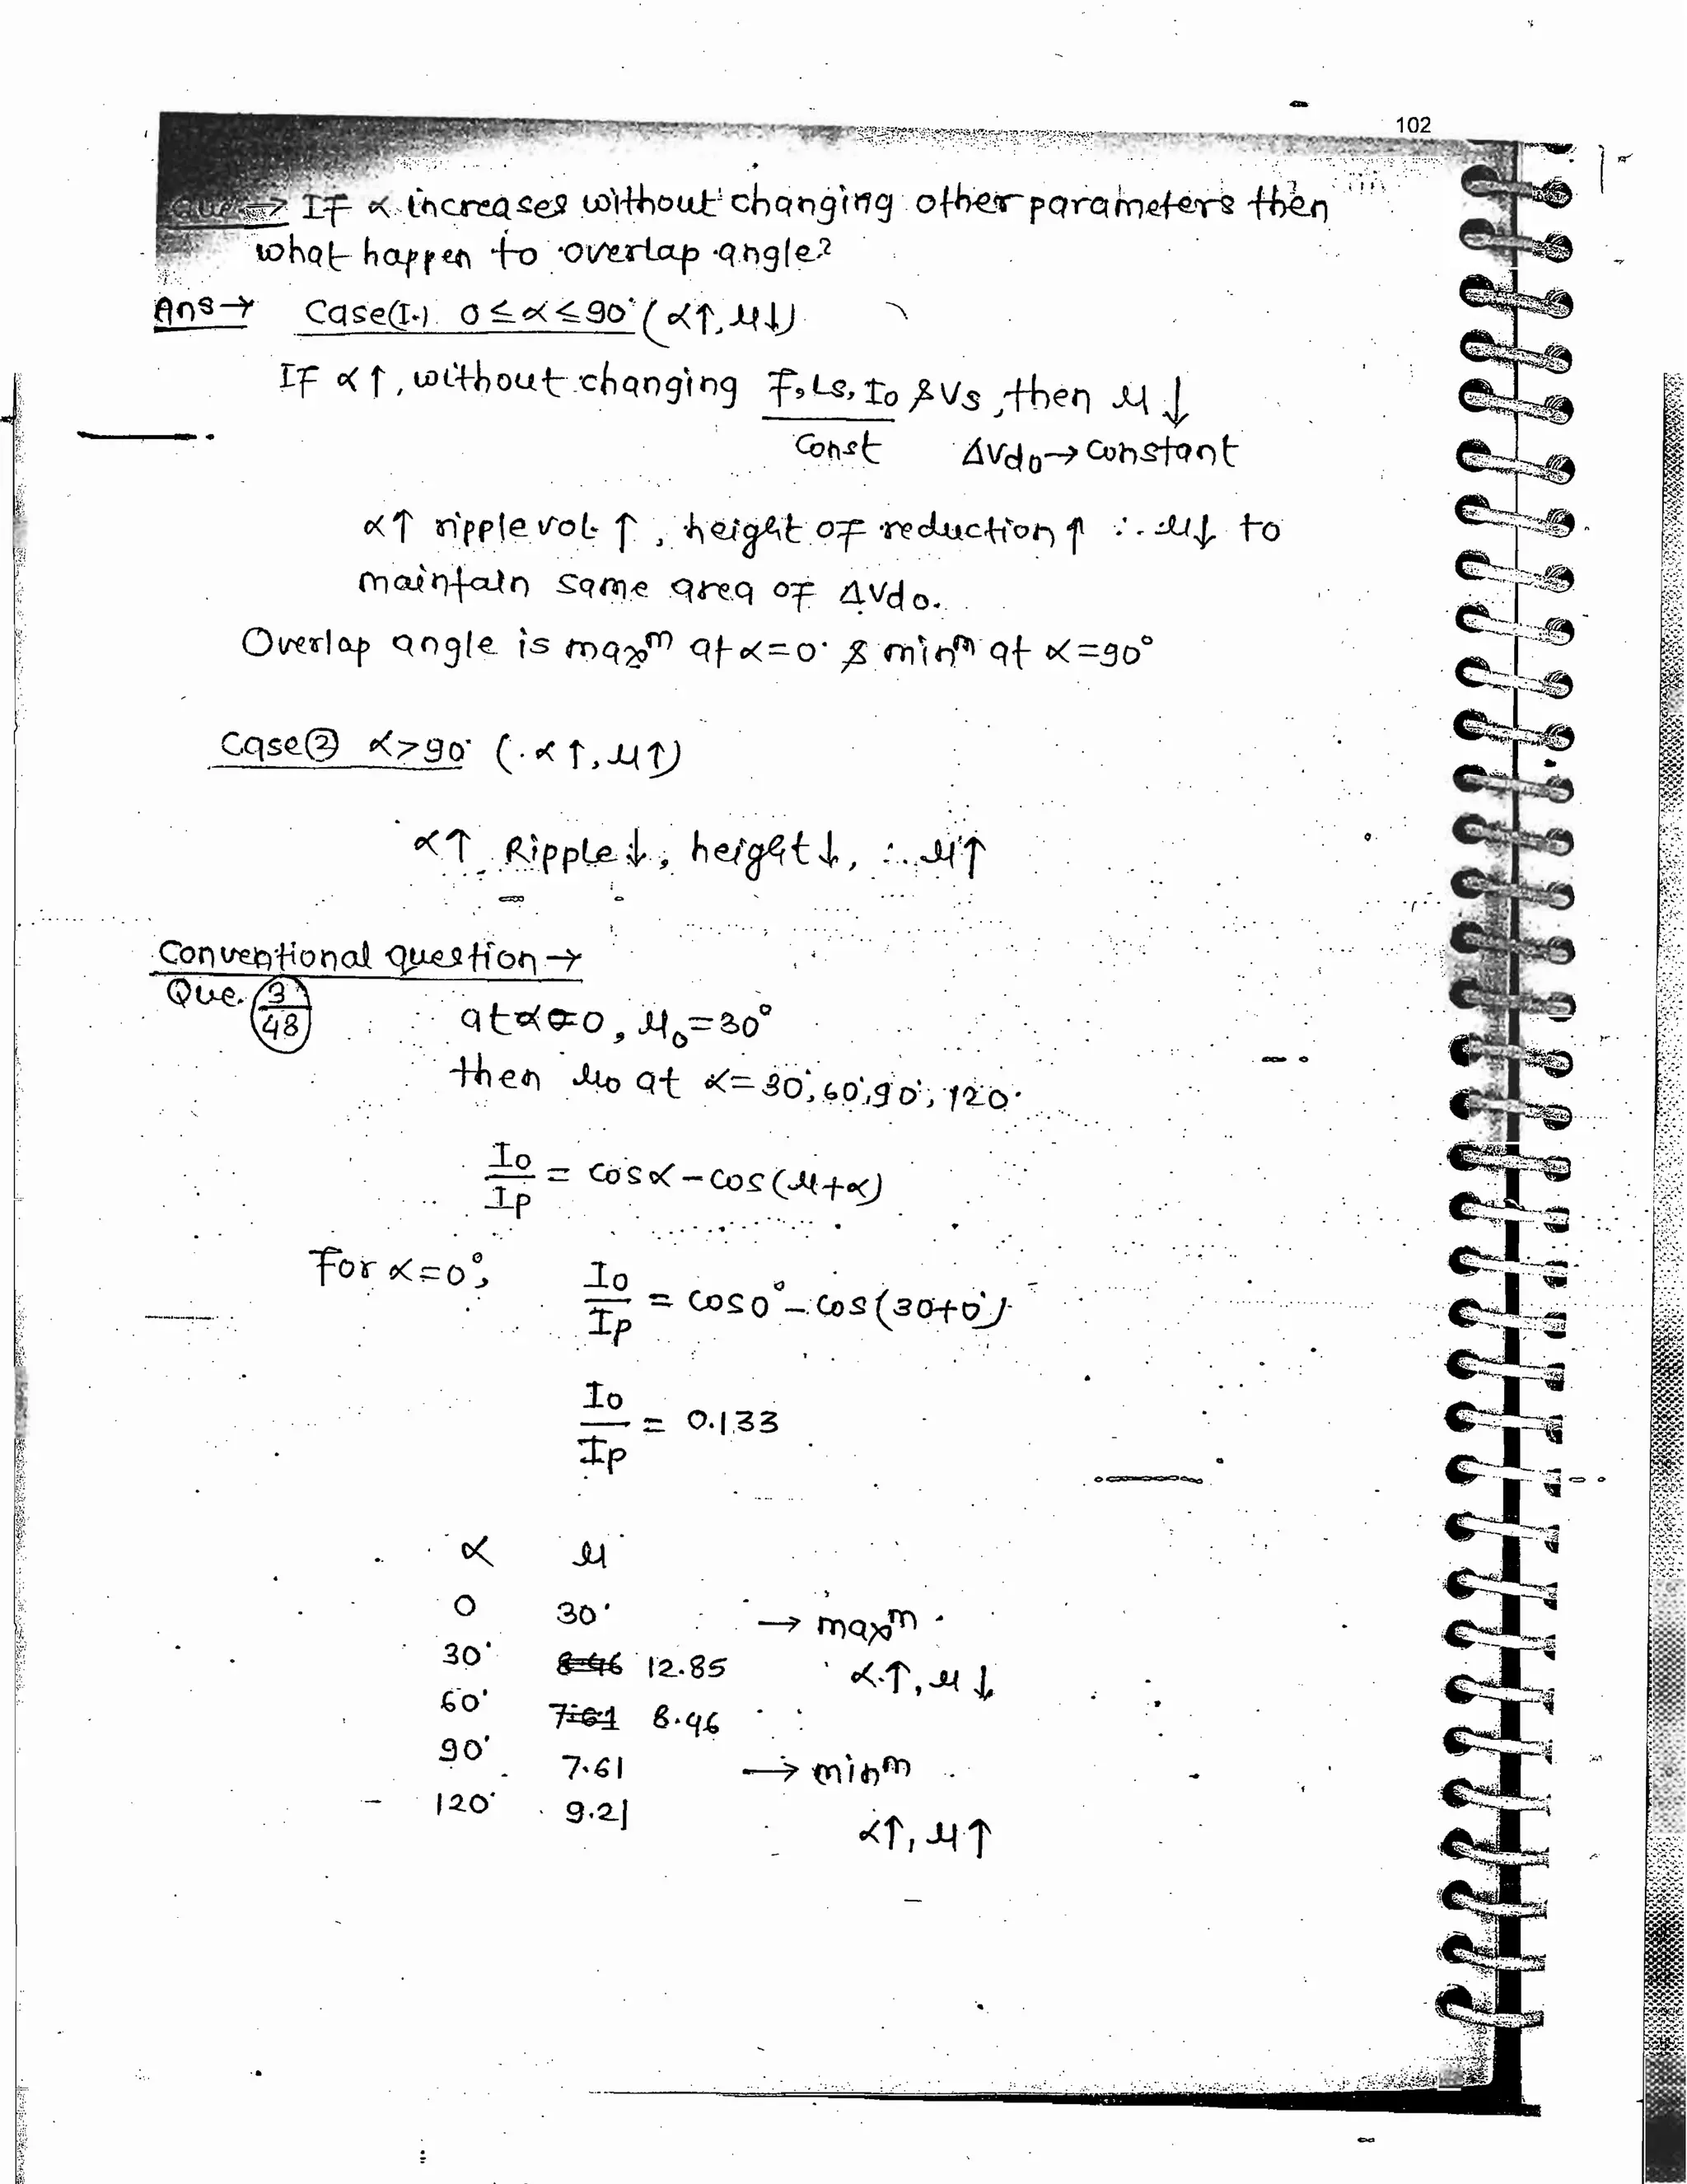 102
Que → If α increases without changing other parameters then
what happen to overlap angle?
Ans → Case(I.) 0 ≤ α ≤ 90° (α↑, μ↓)
If α↑, without changing f, Ls, Io & Vs, then μ ↓
Const ΔVdo → Constant
α↑ ripple vol. ↑, height of reduction ↑ ∴ μ↓ to
maintain same area of ΔVdo.
Overlap angle is maxm at α=0° & minm at α=90°
Case② α>90° (α↑, μ↑)
α↑ Ripple↓, height↓, ∴ μ↑
Conventional question →
Que. 3/48 at α=0, μ0=30°
then μo at α=30°, 60°, 90°, 120°
Io/Ip = cosα - cos(μ+α)
For α=0°, Io/Ip = cos0° - cos(30+0°)
Io/Ip = 0.133
α μ
0 30° → maxm
30° 8.46 12.85 α↑, μ↓
60° 7.61 8.46
90° 7.61 → minm
120° 9.21
α↑, μ↑